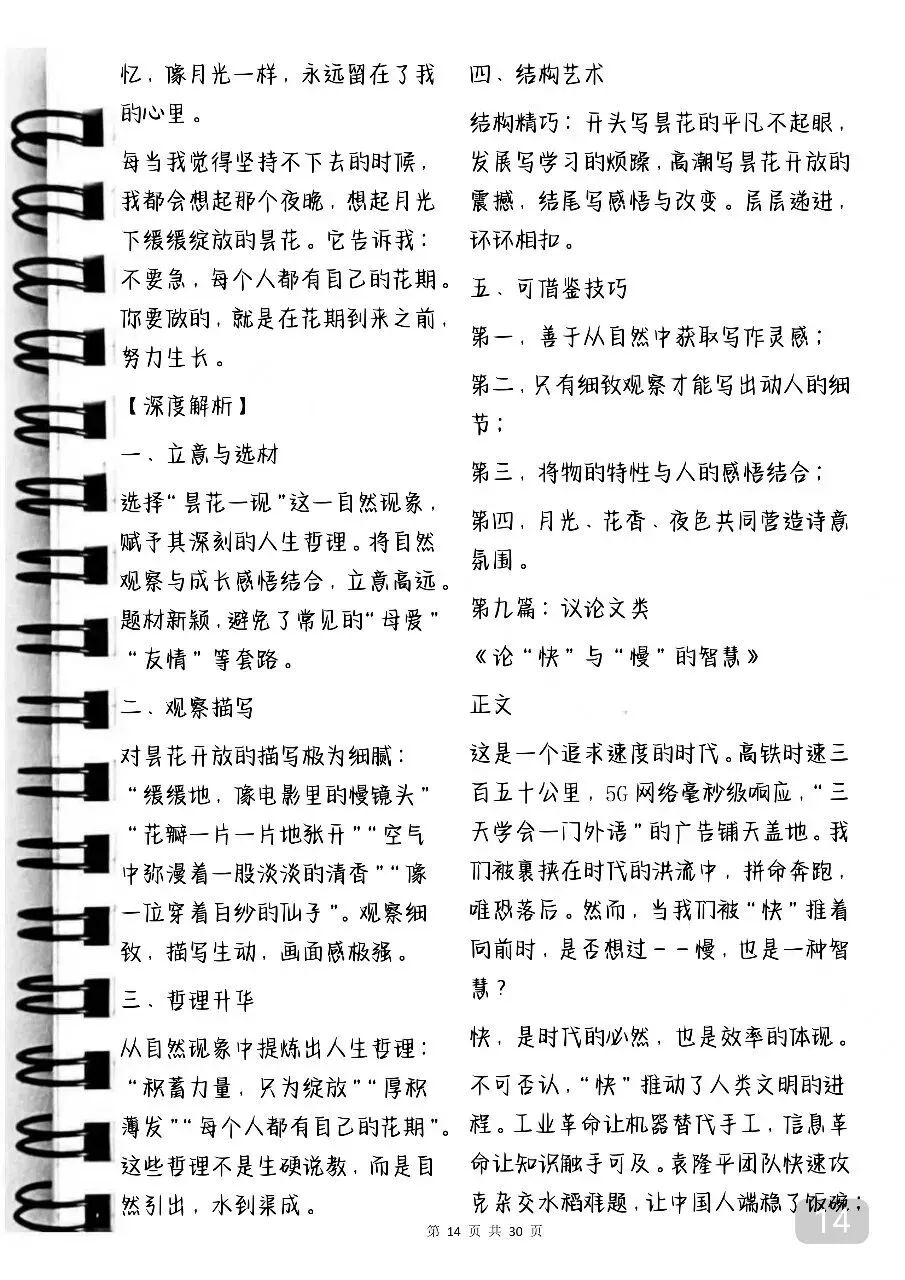 忆，像月光一样，永远留在了我
的心里。
每当我觉得坚持不下去的时候，
我都会想起那个夜晚，想起月光
下缓缓绽放的昙花。它告诉我：
不要急，每个人都有自己的花期。
你要做的，就是在花期到来之前，
努力生长。
【深度解析】
一、立意与选材
选择“昙花一现”这一自然现象，
赋予其深刻的人生哲理。将自然
观察与成长感悟结合，立意高远。
题材新颖，避免了常见的“母爱”
“友情”等套路。
二、观察描写
对昙花开放的描写极为细腻：
“缓缓地，像电影里的慢镜头”
“花瓣一片一片地张开”“空气
中弥漫着一股淡淡的清香”“像
一位穿着白纱的仙子”。观察细
致，描写生动，画面感极强。
三、哲理升华
从自然现象中提炼出人生哲理：
“积蓄力量，只为绽放”“厚积
薄发”“每个人都有自己的花期”。
这些哲理不是生硬说教，而是自
然引出，水到渠成。
四、结构艺术
结构精巧：开头写昙花的平凡不起眼，
发展写学习的烦躁，高潮写昙花开放的
震撼，结尾写感悟与改变。层层递进，
环环相扣。
五、可借鉴技巧
第一，善于从自然中获取写作灵感；
第二，只有细致观察才能写出动人的细
节；
第三，将物的特性与人的感悟结合；
第四，月光、花香、夜色共同营造诗意
氛围。
第九篇：议论文类
《论“快”与“慢”的智慧》
正文
这是一个追求速度的时代。高铁时速三
百五十公里，5G网络毫秒级响应，“三
天学会一门外语”的广告铺天盖地。我
们被裹挟在时代的洪流中，拼命奔跑，
唯恐落后。然而，当我们被“快”推着
向前时，是否想过——慢，也是一种智
慧？
快，是时代的必然，也是效率的体现。
不可否认，“快”推动了人类文明的进
程。工业革命让机器替代手工，信息革
命让知识触手可及。袁隆平团队快速攻
克杂交水稻难题，让中国人端稳了饭碗；
第 14 页 共 30 页
14